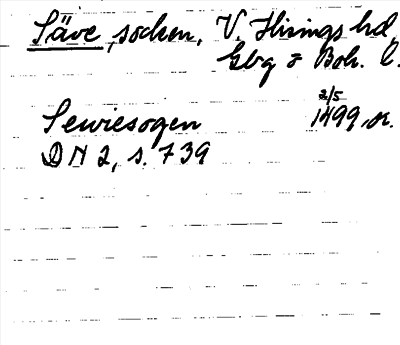 Säve, socken, V. Hisings hd,
Gbg o Boh. l.
Sewiesogen 2/5 1499, or.
DN 2, s. 739